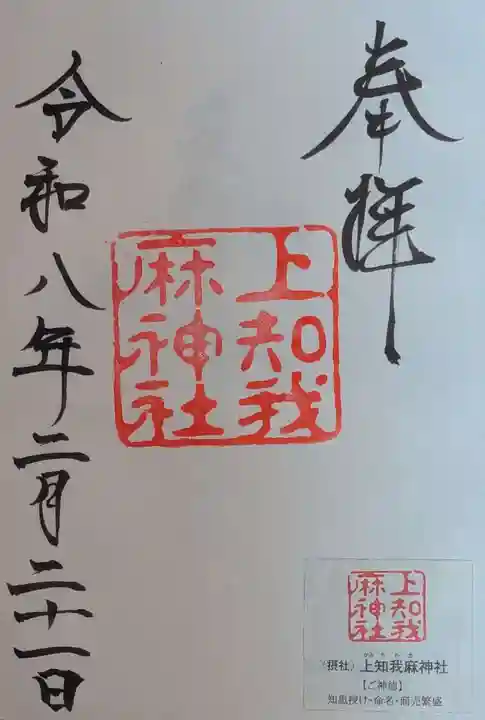 奉拝
上知我
麻神社
令和八年二月二十一日
上知我
麻神社
〈摂社〉上知我麻神社
かみちかま
【ご神徳】
知恵授け・命名・商売繁盛